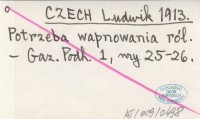 CZECH Ludwik 1913.
Potrzeba wapnowania ról.
– Gaz. Podh. 1, nry 25-26.